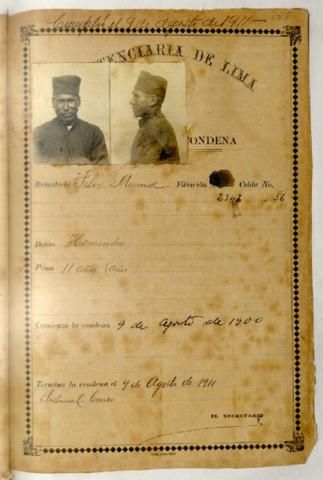 Cumplió el 9 de agosto de 1911
TENCIARIA DE LIMA
ONDENA
Rematado Félix Filiación Celda No.
2343 56
Delito Homicidio
Pena 11 años (once)
Comienza la condena 9 de Agosto de 1900
Termina la condena el 9 de Agosto de 1911
Tribunal Cuzco
EL SECRETARIO